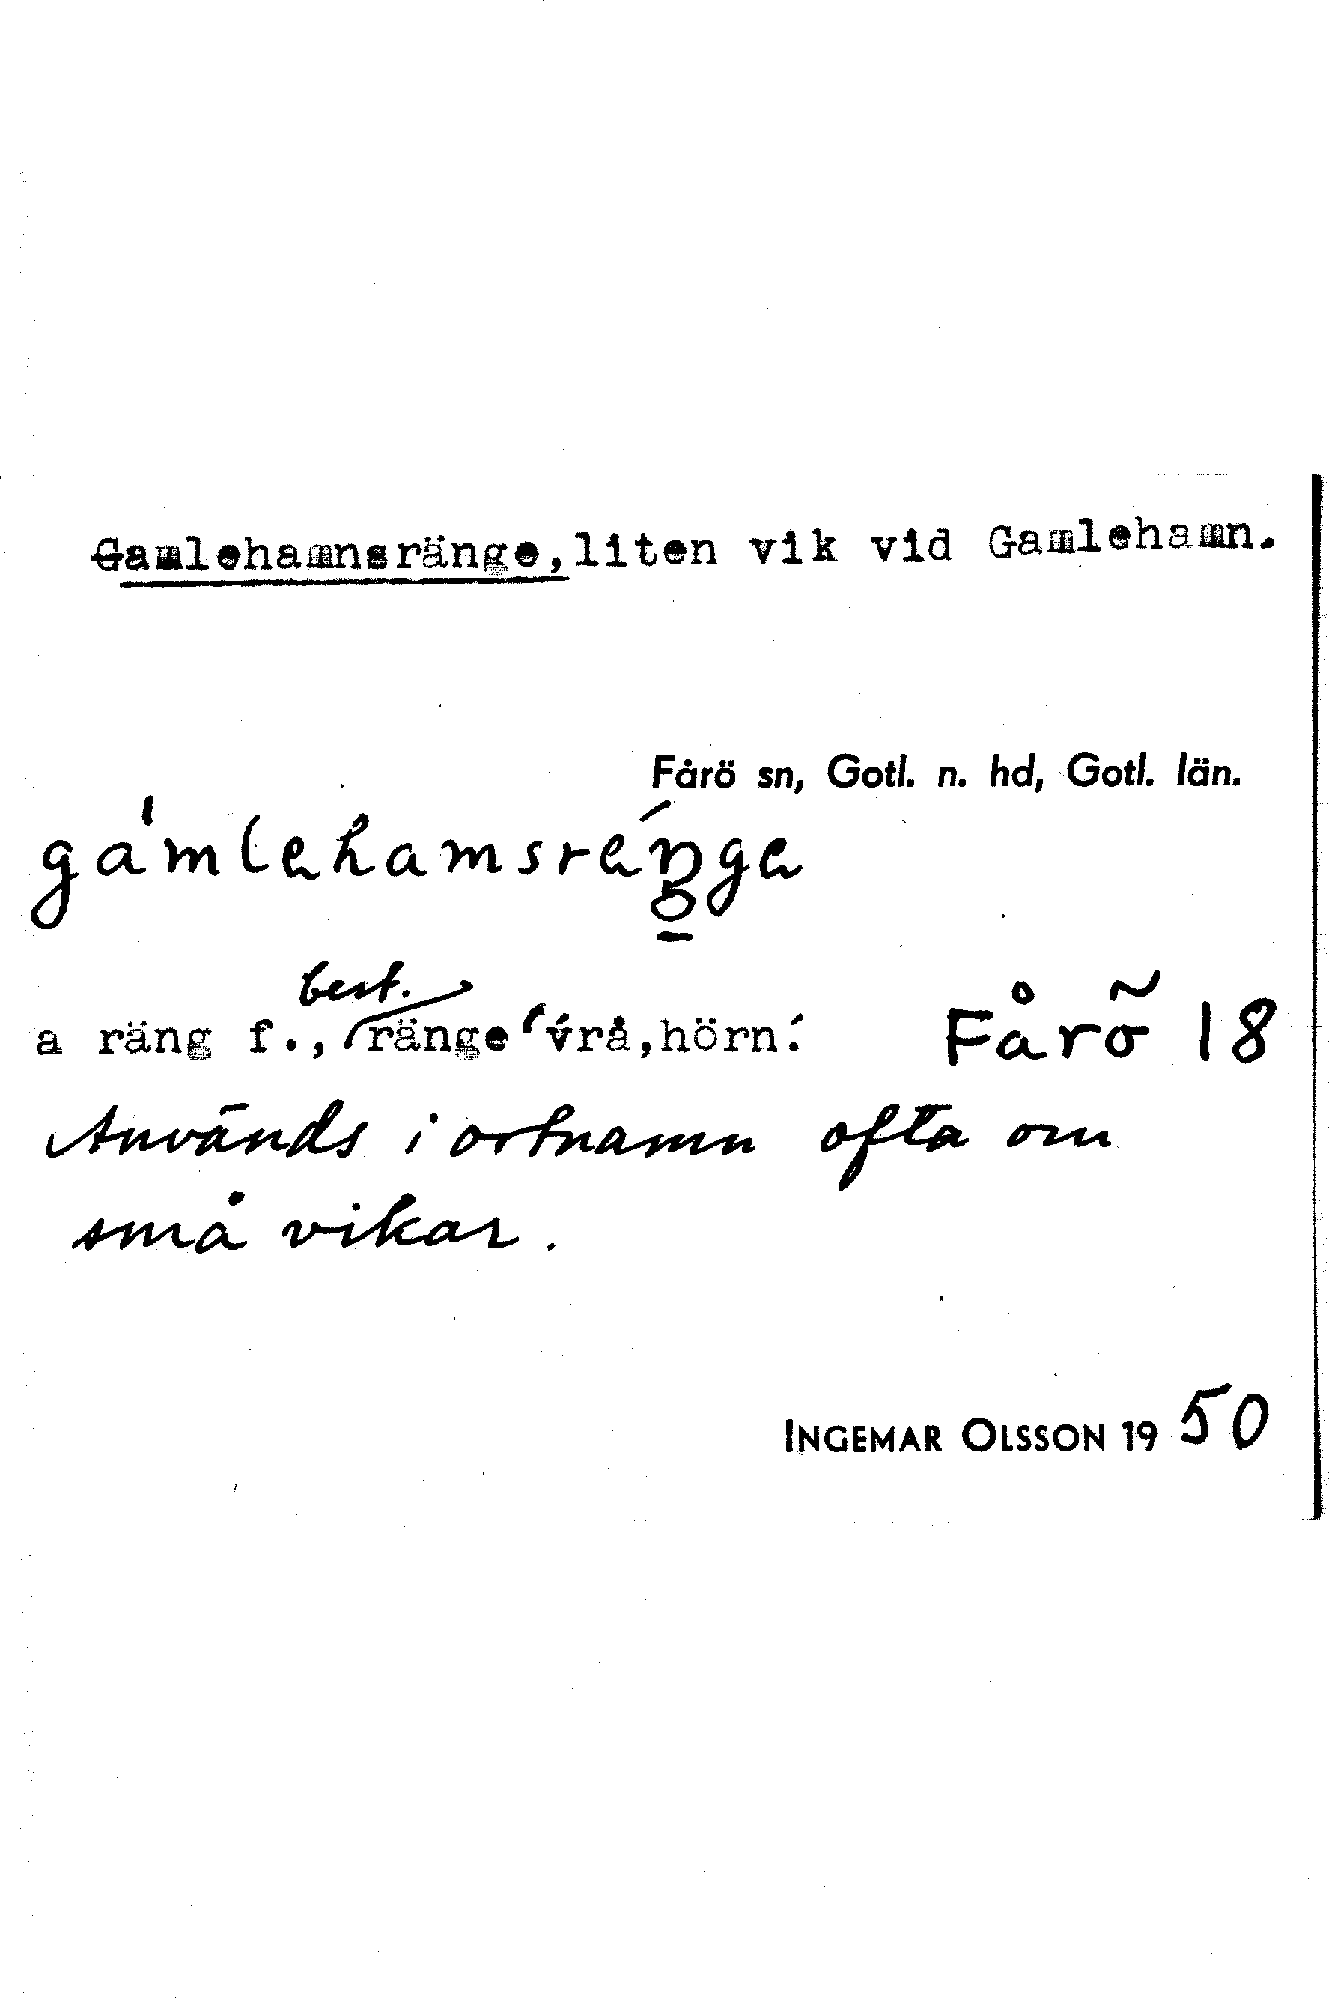 Gamlehamnsränge, liten vik vid Gamlehamn.
Fårö sn, Gotl. n. hd, Gotl. län.
gámlehamsréŋge
best.
a räng f., ränge 'vrå, hörn.' Fårö 18
Används i ortnamn ofta om
små vikar.
INGEMAR OLSSON 1950